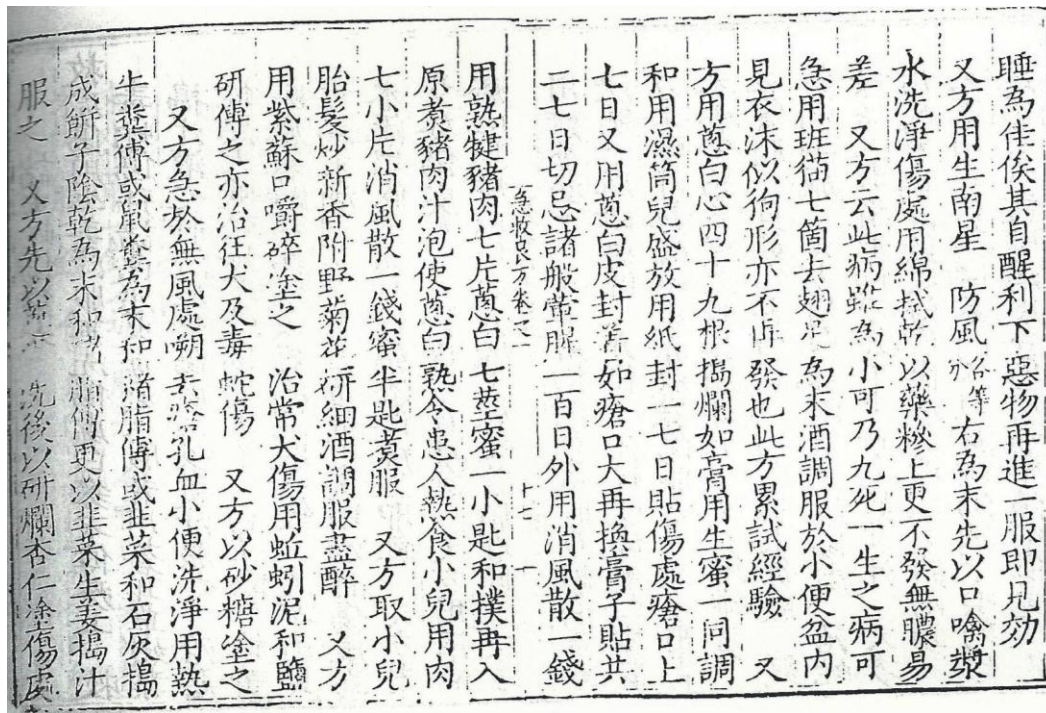 睡為佳俟其自醒利下惡物再進一服即見効
又方用生南星 防風各等分 右為末先以口噙漿
水洗淨傷處用綿拭乾以藥糝上更不發無膿易
差 又方云此病雖為小可乃九死一生之病可
急用班猫七箇去翅足為末酒調服於小便盆內
見衣沫似狗形亦不再發也此方累試經驗 又
方用蔥白心四十九根搗爛如膏用生蜜一同調
和用濕筒兒盛放用紙封一七日貼傷處瘡口上
七日又用蔥白皮封著如瘡口大再換膏子貼共
二七日切忌諸般葷腥一百日外用消風散一錢
急救良方卷之一 十七
用熟犍豬肉七片蔥白七莖蜜一小匙和撲再入
原煮豬肉汁泡使蔥白熟令患人熱食小兒用肉
七小片消風散一錢蜜半匙煑服 又方取小兒
胎髮炒新香附野菊花研細酒調服盡醉 又方
用紫蘇口嚼碎塗之 治常犬傷用蚯蚓泥和鹽
研傅之亦治狂犬及毒蛇傷 又方以砂糖塗之
又方急於無風處嗍去瘡孔血小便洗淨用熱
牛糞傅或鼠糞為末和猪脂傅或韭菜和石灰搗
成餅子陰乾為末和猪脂傅更以韭菜生姜搗汁
服之 又方先以 洗後以研爛杏仁塗傷處